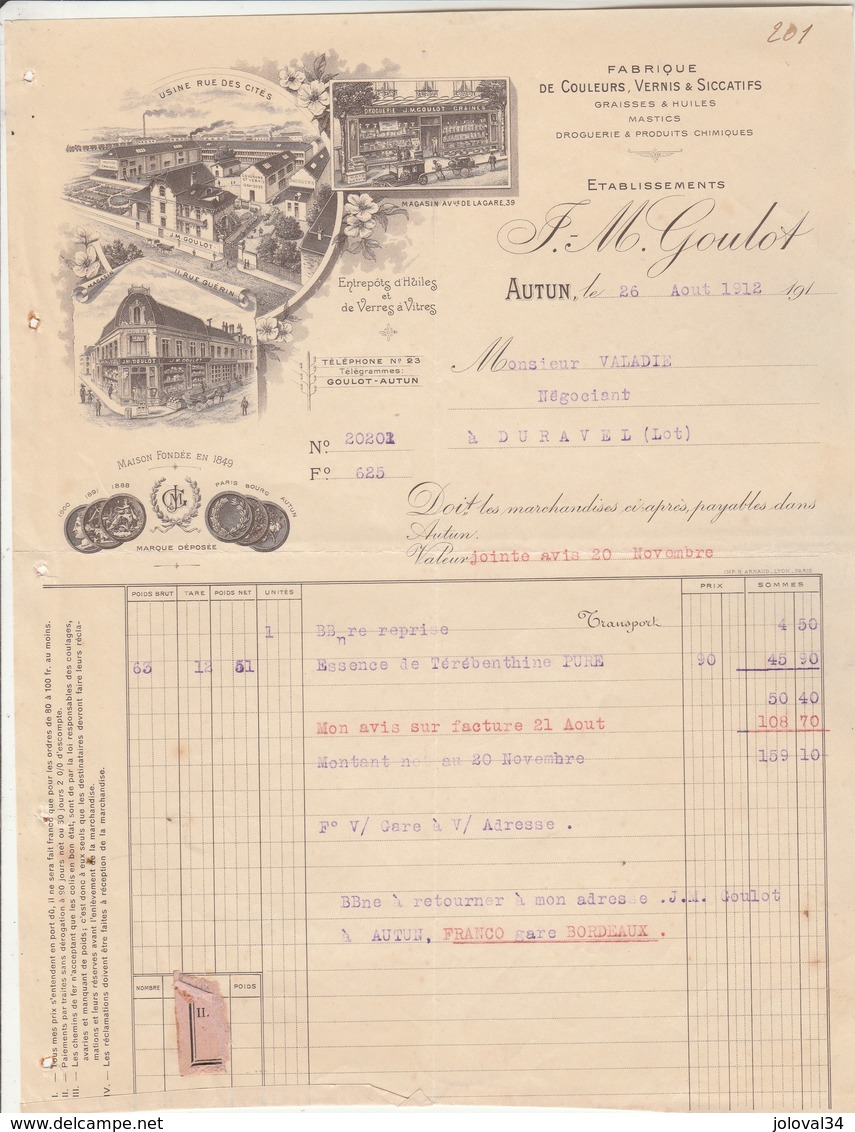 201
USINE RUE DES CITÉS
DROGUERIE J.M. GOULOT GRAINES
MAGASIN AV.ue DE LA GARE, 39
J.M. GOULOT
MAGASIN 11, RUE GUÉRIN
J.M. GOULOT J.M. GOULOT
Entrepôts d'Huiles
et
de Verres à Vitres
FABRIQUE
DE COULEURS, VERNIS & SICCATIFS
GRAISSES & HUILES
MASTICS
DROGUERIE & PRODUITS CHIMIQUES
ETABLISSEMENTS
J.-M. Goulot
AUTUN, le 26 Aout 1912 191
TÉLÉPHONE No 23
Télégrammes:
GOULOT-AUTUN
Monsieur VALADIE
Négociant
à DURAVEL (Lot)
No. 20202
Fo. 625
MAISON FONDÉE EN 1849
1900 1891 1888
JMG
PARIS BOURG AUTUN
MARQUE DÉPOSÉE
Doit les marchandises ci-après, payables dans
Autun.
Valeur jointe avis 20 Novembre
IMP. B. ARNAUD, LYON, PARIS
POIDS BRUT TARE POIDS NET UNITÉS PRIX SOMMES
Transport
1 BBnre reprise 4 50
63 12 51 Essence de Térébenthine PURE 90 45 90
50 40
Mon avis sur facture 21 Aout 108 70
Montant net au 20 Novembre 159 10
Fo V/ Gare à V/ Adresse .
BBne à retourner à mon adresse .J.M. Goulot
à AUTUN, FRANCO gare BORDEAUX .
NOMBRE POIDS
II.
I. — Tous mes prix s'entendent en port dû, il ne sera fait franco que pour les ordres de 80 à 100 fr. au moins.
II. — Paiements par traites sans dérogation à 90 jours net ou 30 jours 2 0/0 d'escompte.
III. — Les chemins de fer n'acceptant que les colis en bon état, sont de par la loi responsables des coulages,
avaries et manquant de poids; c'est donc à eux seuls que les destinataires devront faire leurs récla-
mations et leurs réserves avant l'enlèvement de la marchandise.
IV. — Les réclamations doivent être faites à réception de la marchandise.
Delcampe.net
joloval34